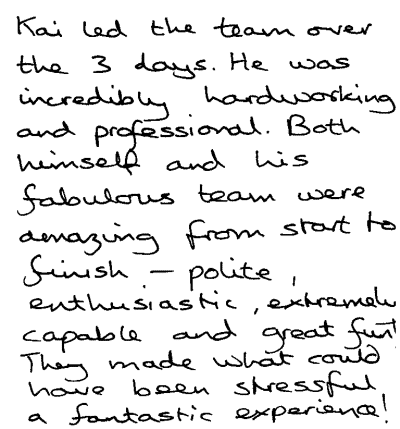 Kai led the team over
the 3 days. He was
incredibly hardworking
and professional. Both
himself and his
fabulous team were
amazing from start to
finish - polite,
enthusiastic, extremely
capable and great fun!
They made what could
have been stressful
a fantastic experience!